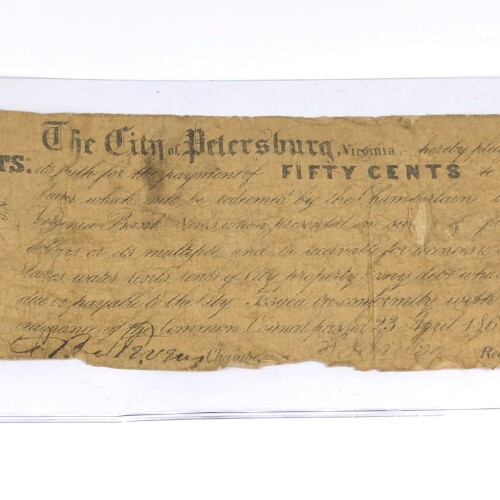 The City of Petersburg, Virginia, hereby
TS. its faith for the payment of FIFTY CENTS
which will be redeemed by the Chamberlain
Virginia Bank Notes when presented in of
dollars or its multiple and be receivable for
taxes water rents rents of City property or any debt
due or payable to the City. Issued in conformity with
of the Common Council passed 23 April 186
Chambe